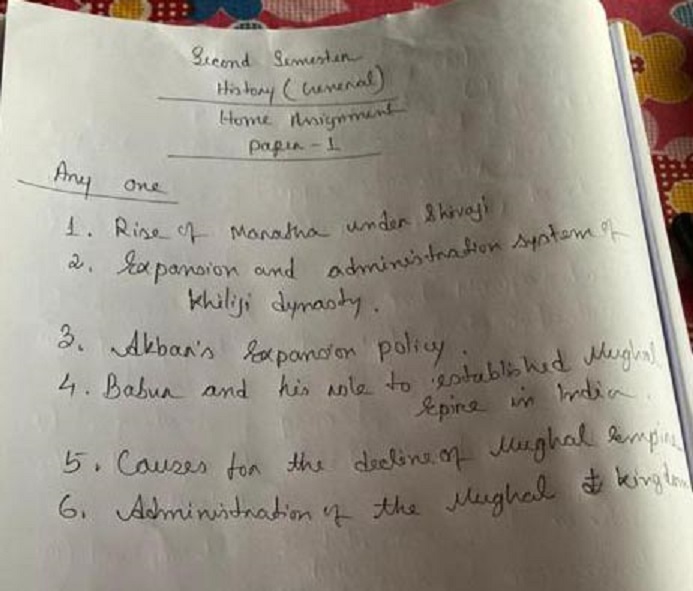 Second Semester
History (General)
Home Assignment
Paper - 1
Any one
1. Rise of Maratha under Shivaji
2. Expansion and administration system of
Khiliji dynasty.
3. Akbar's Expansion policy.
4. Babur and his role to established Mughal
Epire in India.
5. Causes for the decline of Mughal Empire
6. Administration of the Mughal kingdom